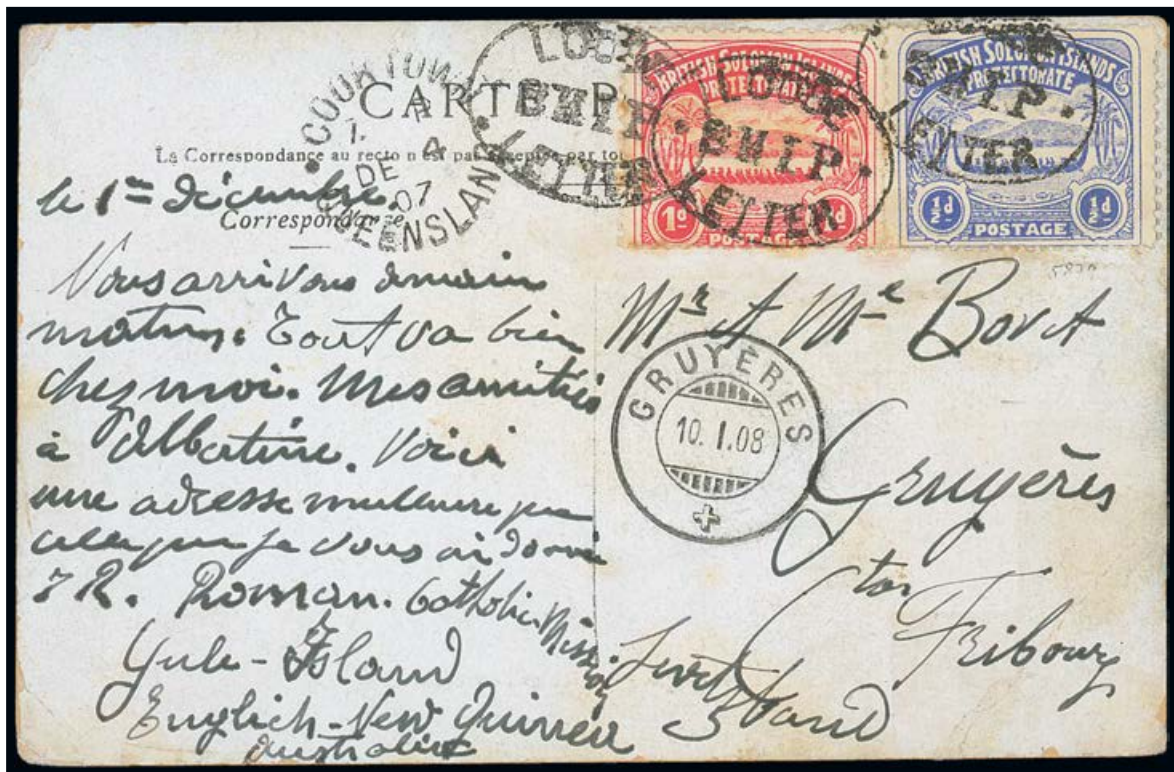 CARTE P
La Correspondance au recto n'est pas acceptée par tou
Correspondance
COOKTOWN
DE 4
07
QUEENSLAND
LOOSE
SHIP
LETTER
LOOSE
SHIP.
LETTER
SHIP.
LETTER
BRITISH SOLOMON ISLANDS
PROTECTORATE
1d
POSTAGE
BRITISH SOLOMON ISLANDS
PROTECTORATE
½d ½d
POSTAGE
le 1er décembre.
Nous arrivons demain
matin. Tout va bien
chez moi. Mes amitiés
à Albertine. Voici
une adresse meilleure que
celle que je vous ai donné
R. Roman. Catholic Mission
Yule-Island
Englich-New Guinea
Australie
Mr et Me Bovet
Gruyères
ton
Fribourg
GRUYÈRES
10. I. 08